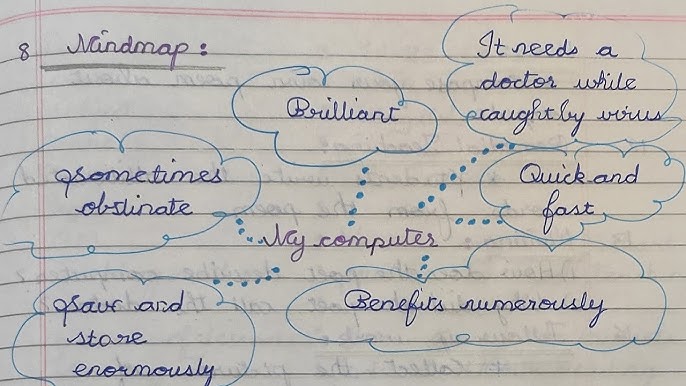 8 Mindmap :
It needs a
doctor while
caught by virus
Brilliant
Sometimes
obstinate
Quick and
fast
My computer
Save and
store
enormously
Benefits numerously